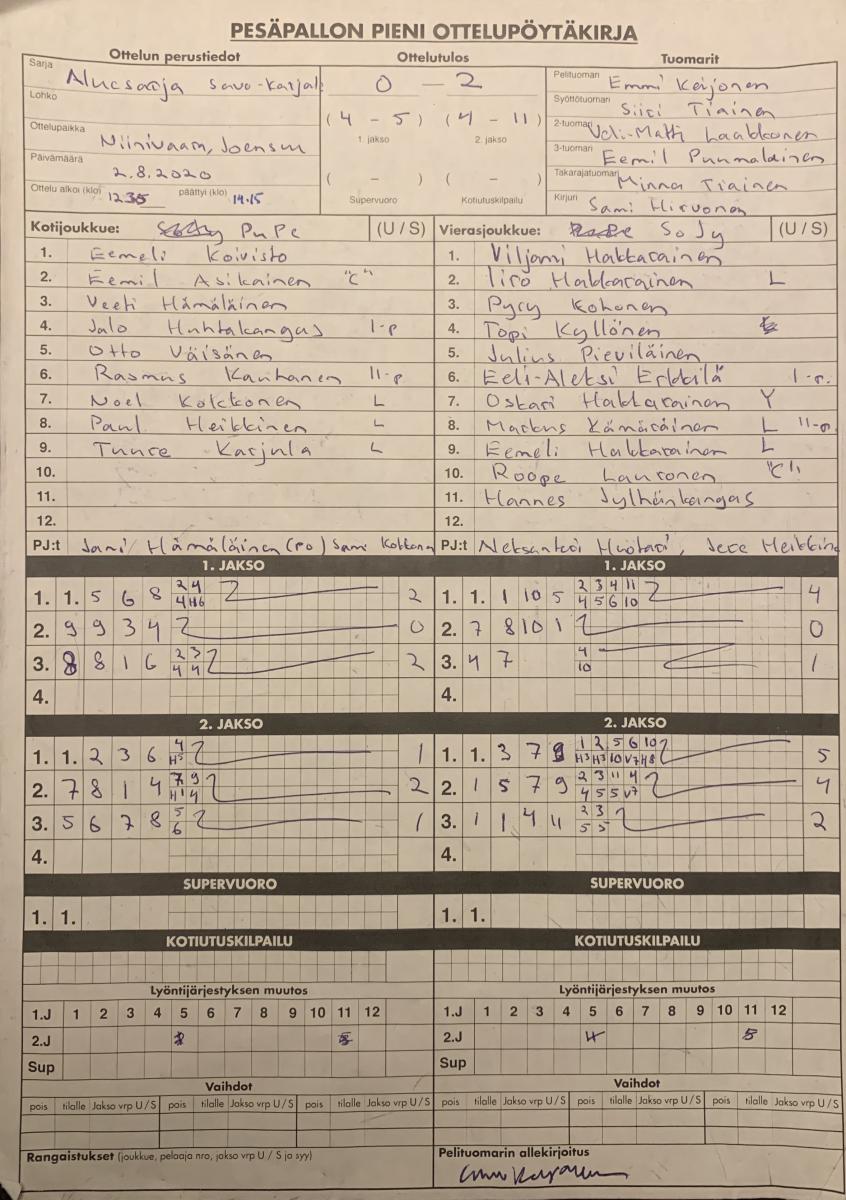 PESÄPALLON PIENI OTTELUPÖYTÄKIRJA
Ottelun perustiedot Ottelutulos Tuomarit
Sarja Aluesarja Savo-Karjal
Lohko
Ottelupaikka Niinivaara, Joensuu
Päivämäärä 2.8.2020
Ottelu alkoi (klo) 12.35 päättyi (klo) 14.15
0 - 2
( 4 - 5 ) ( 4 - 11 )
1. jakso 2. jakso
( - ) ( - )
Supervuoro Kotiutuskilpailu
Pelituomari Emmi Keijonen
Syöttötuomari Siiri Tiainen
2-tuomari Veli-Matti Laakkonen
3-tuomari Eemil Puumalainen
Takarajatuomari Minna Tiainen
Kirjuri Sami Hirvonen
Kotijoukkue: PuPe (U / S)
1. Eemeli Koivisto
2. Eemil Asikainen "C"
3. Veeti Hämäläinen
4. Jalo Huhtakangas I-p
5. Otto Väisänen
6. Rasmus Kauhanen II-p
7. Noel Kokkonen L
8. Paul Heikkinen L
9. Tuure Karjula L
10.
11.
12.
PJ:t Jani Hämäläinen (PO) Sami Kokkonen
Vierasjoukkue: SoJy (U / S)
1. Viljami Hakkarainen
2. Iiro Hakkarainen L
3. Pyry Kohonen
4. Topi Kyllönen
5. Julius Pieviläinen
6. Eeli-Aleksi Erkkilä I-p.
7. Oskari Hakkarainen Y
8. Markus Kämäräinen L II-p
9. Eemeli Hakkarainen L
10. Roope Lauronen "C"
11. Hannes Jylhänkangas
12.
PJ:t
1. JAKSO
1. 1. 5 6 8 2 4 2
4 H6
2. 9 9 3 4 0
3. 8 8 1 6 2 3 2
4 4
4.
1. JAKSO
1. 1. 1 10 5 2 3 4 11 4
4 5 6 10
2. 7 8 10 1 0
3. 4 7 4 1
10
4.
2. JAKSO
1. 1. 2 3 6 4 1
H3
2. 7 8 1 4 7 9 2
H1 4
3. 5 6 7 8 5 1
6
4.
2. JAKSO
1. 1. 3 7 9 1 2 5 6 10 5
H3 H3 10 V7 H8
2. 1 5 7 9 2 3 11 4 4
4 5 5 V7
3. 1 1 4 11 2 3 2
5 5
4.
SUPERVUORO
1. 1.
SUPERVUORO
1. 1.
KOTIUTUSKILPAILU
KOTIUTUSKILPAILU
Lyöntijärjestyksen muutos
1.J 1 2 3 4 5 6 7 8 9 10 11 12
2.J
Sup
Lyöntijärjestyksen muutos
1.J 1 2 3 4 5 6 7 8 9 10 11 12
2.J 4 5
Sup
Vaihdot
pois tilalle Jakso vrp U / S pois tilalle Jakso vrp U / S pois tilalle Jakso vrp U / S
Vaihdot
pois tilalle Jakso vrp U / S pois tilalle Jakso vrp U / S pois tilalle Jakso vrp U / S
Rangaistukset (joukkue, pelaaja nro, jakso vrp U / S ja syy)
Pelituomarin allekirjoitus